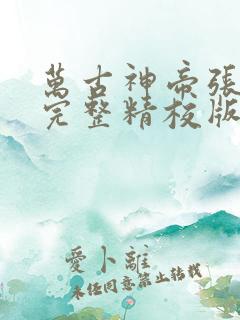 萬古神帝張
完整精校版
愛卜離
未任同意禁止轉載